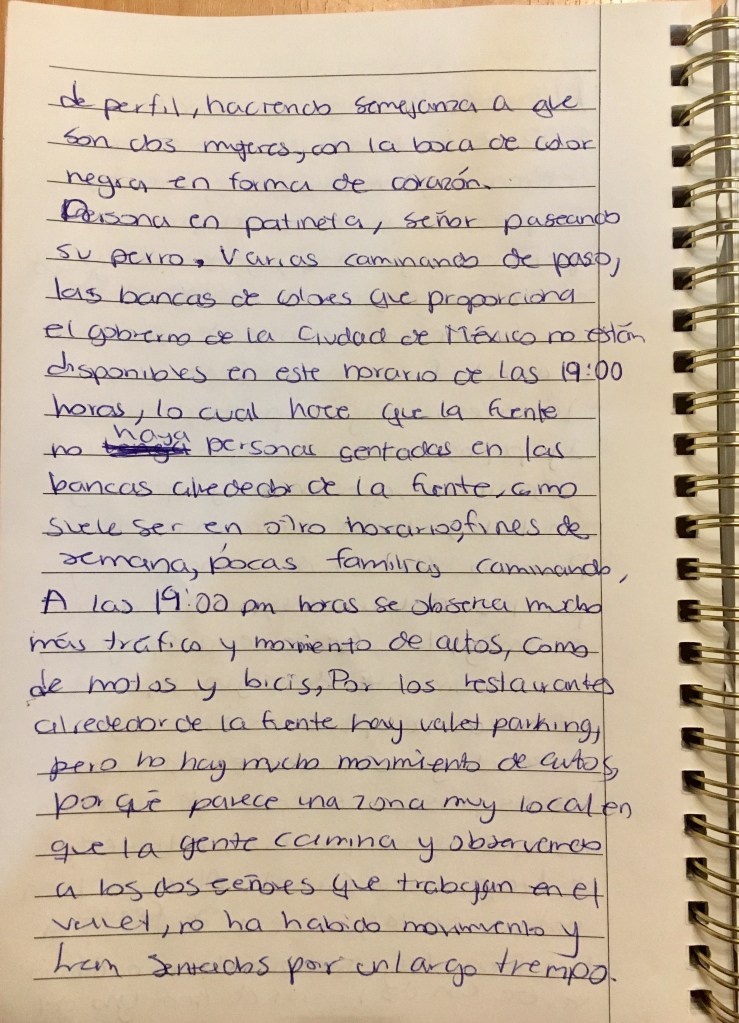 de perfil, haciendo semejanza a que
son dos mujeres, con la boca de color
negra en forma de corazón.
Persona en patineta, señor paseando
su perro. Varias caminando de paso,
las bancas de colores que proporciona
el gobierno de la Ciudad de México no están
disponibles en este horario de las 19:00
horas, lo cual hace que la fuente
no haya personas sentadas en las
bancas alrededor de la fuente, como
suele ser en otro horario, fines de
semana, pocas familias caminando,
A las 19:00 pm horas se observa mucho
más tráfico y movimiento de autos, como
de motos y bicis, Por los restaurantes
alrededor de la fuente hay valet parking,
pero no hay mucho movimiento de autos,
por qué parece una zona muy local en
que la gente camina y observamos
a los dos señores que trabajan en el
vallet, no ha habido movimiento y
han sentados por un largo tiempo.